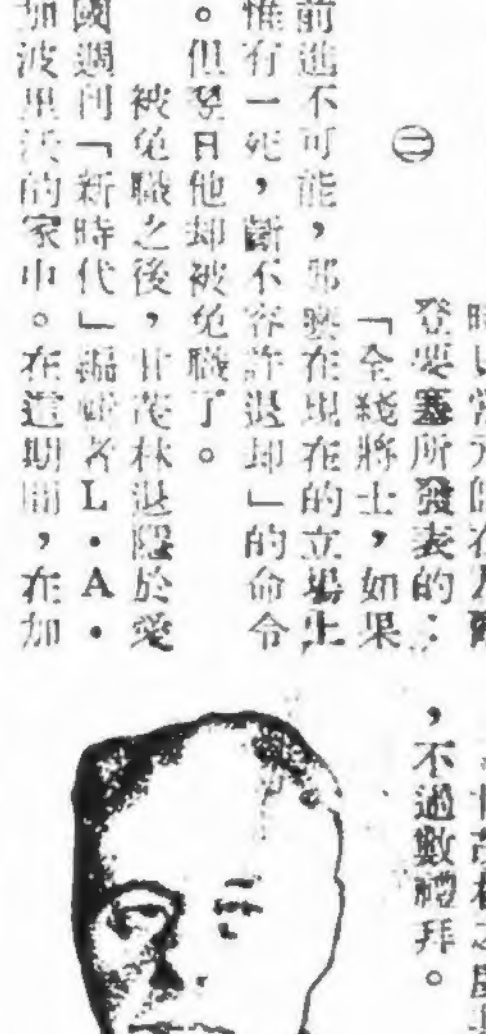 登要塞所發表的：
「全綫將士，如果
㊂
前進不可能，那麽在現在的立場上
惟有一死，斷不容許退却」的命令
。但翌日他却被免職了。
被免職之後，甘茂林退隱於愛
國週刊「新時代」編輯者L・A・
加波里沃的家中。在這期間，在加
，不過數禮拜。